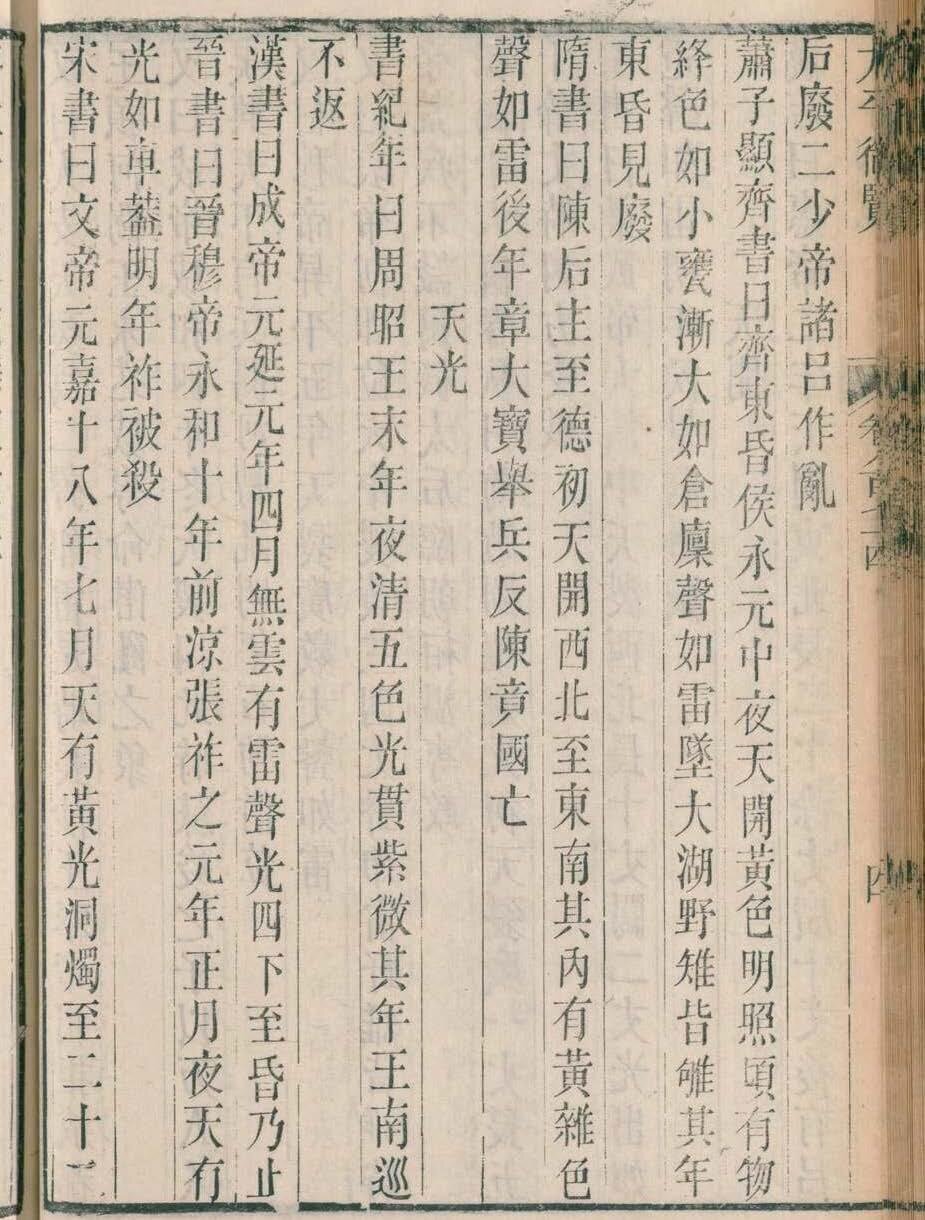 太平御覽 卷八百七十四 四
后廢二少帝諸呂作亂
蕭子顯齊書曰齊東昏侯永元中夜天開黃色明照頃有物
絳色如小甕漸大如倉廩聲如雷墜大湖野雉皆雊其年
東昏見廢
隋書曰陳后主至德初天開西北至東南其內有黃雜色
聲如雷後年章大寶舉兵反陳竟國亡
天光
書紀年曰周昭王末年夜清五色光貫紫微其年王南巡
不返
漢書曰成帝元延元年四月無雲有雷聲光四下至昏乃止
晉書曰晉穆帝永和十年前涼張祚之元年正月夜天有
光如車葢明年祚被殺
宋書曰文帝元嘉十八年七月天有黃光洞燭至二十